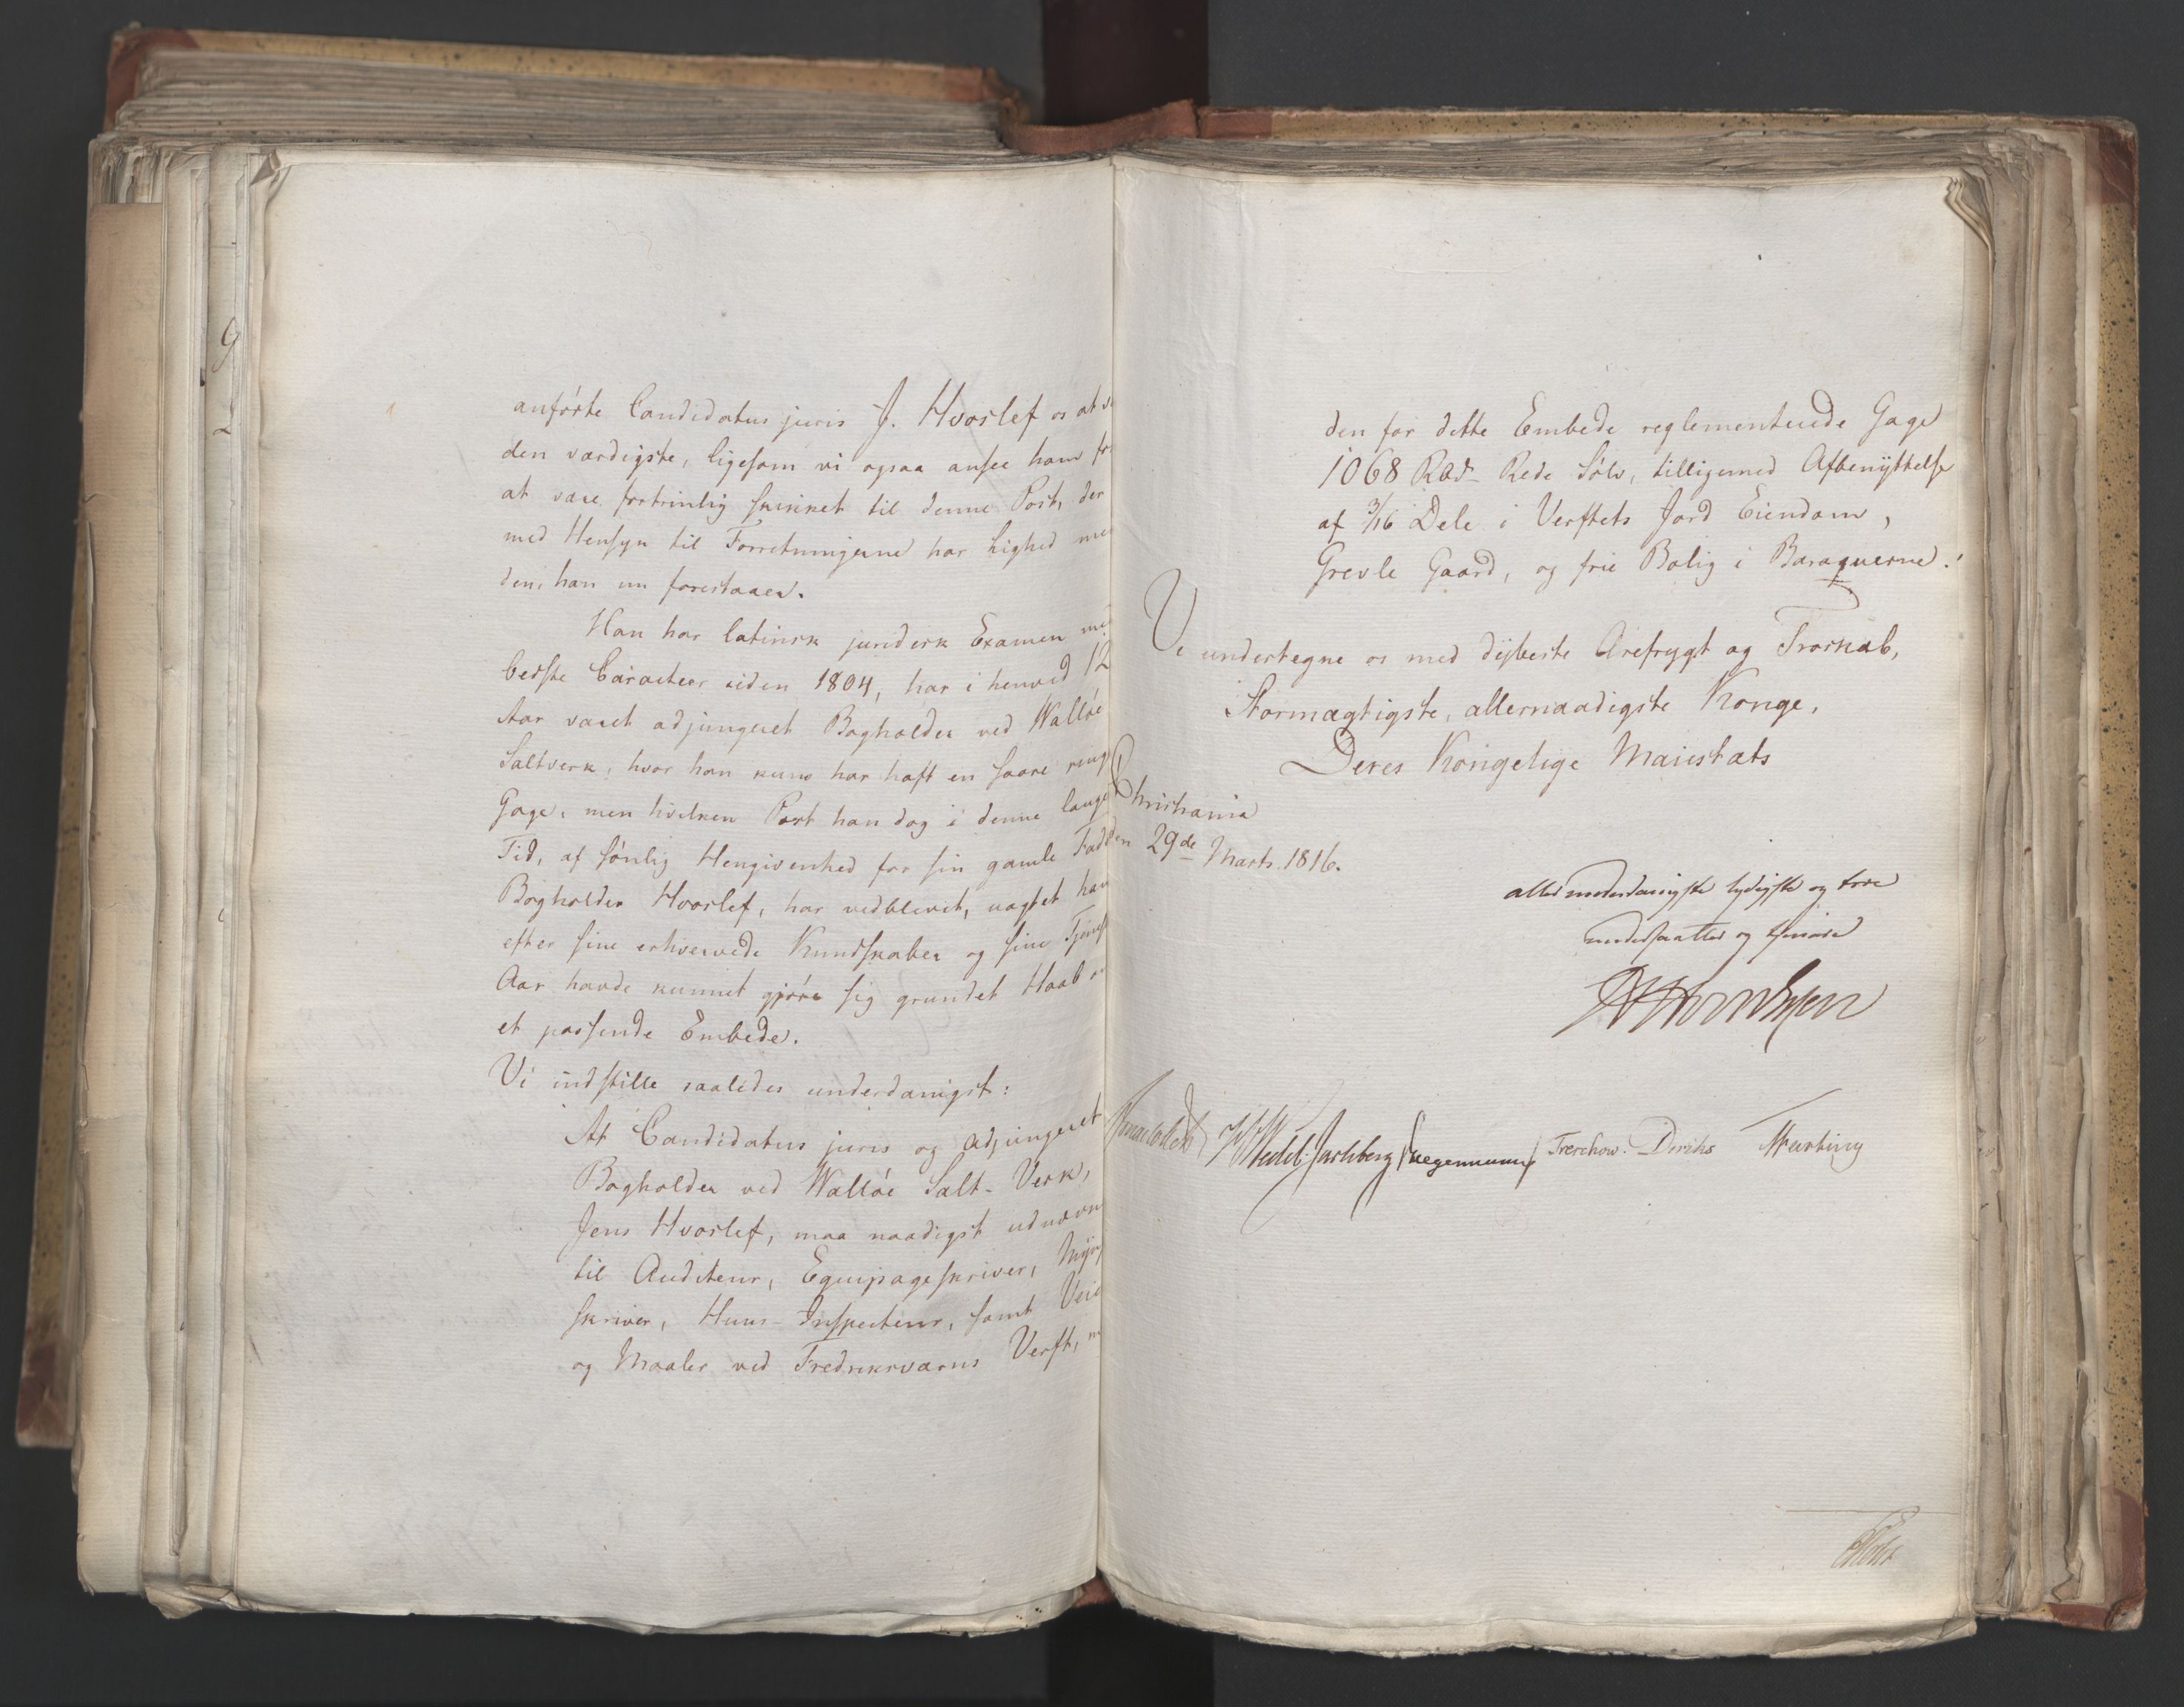 anførte Candidatus juris J. Hvoslef os at v
den værdigste, ligesom vi ogsaa ansee ham f
at være fortrinlig skikket til denne Post, der
med Hensyn til Forretningerne har Lighed me
den, han nu forestaaer.
Han har latinsk juridisk Examen me
bedste Caracteer siden 1804, har i henved 12
Aar været adjungeret Bogholder ved Walløe
Saltverk, hvor han kuns har haft en saare ring
Gage, men hvilken Post han dog i denne lange
Tid, af sønlig Hengivenhed for sin gamle Fad
Bogholder Hvoslef, har vedblevet, uagtet han
efter sine erhvervede Kundskaber og sine Tjenst
Aar havde kunnet gjøre sig grundet Haab o
et passende Embede.
Vi indstille saaledes underdanigst:
At Candidatus juris og adjungeret
Bogholder ved Walløe Salt-Verk,
Jens Hvoslef, maa naadigst udnævn
til Auditeur, Equipageskriver, Myn
skriver, Huus-Inspecteur, samt Veie
og Maaler ved Fredriksværns Verft, m
den for dette Embede reglementerede Gage
1068 Rbd. Rede Sølv, tilligemed Afbenyttelse
af 3/16 Dele i Verftets Jord Eiendom,
Grevle Gaard, og frie Bolig i Baraquerne.
Vi undertegne os med dybeste Ærefrygt og Troskab,
Stormægtigste, allernaadigste Konge,
Deres Kongelige Maiestæts
Christiania
den 29de Marts 1816.
allerunderdanigste lydigste og troe
undersaatter og tjenere
Wedel-Jarlsberg Krogh Treschow. Diriks Hartvig
Holst